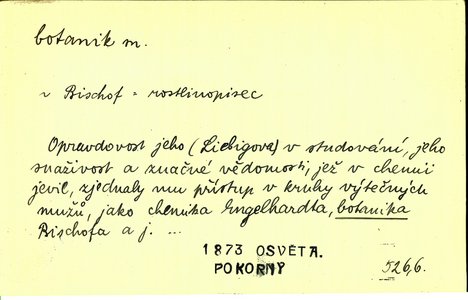 botanik m.
v Bischof = rostlinopisec
Opravdovost jeho (Liebigova) v studování, jeho
snaživost a značné vědomosti, jež v chemii
jevil, zjednaly mu přístup v kruhy výtečných
mužů, jako chemika Engelhardta, botanika
Bischofa a j. ...
1873 OSVĚTA.
POKORNÝ
526,6.